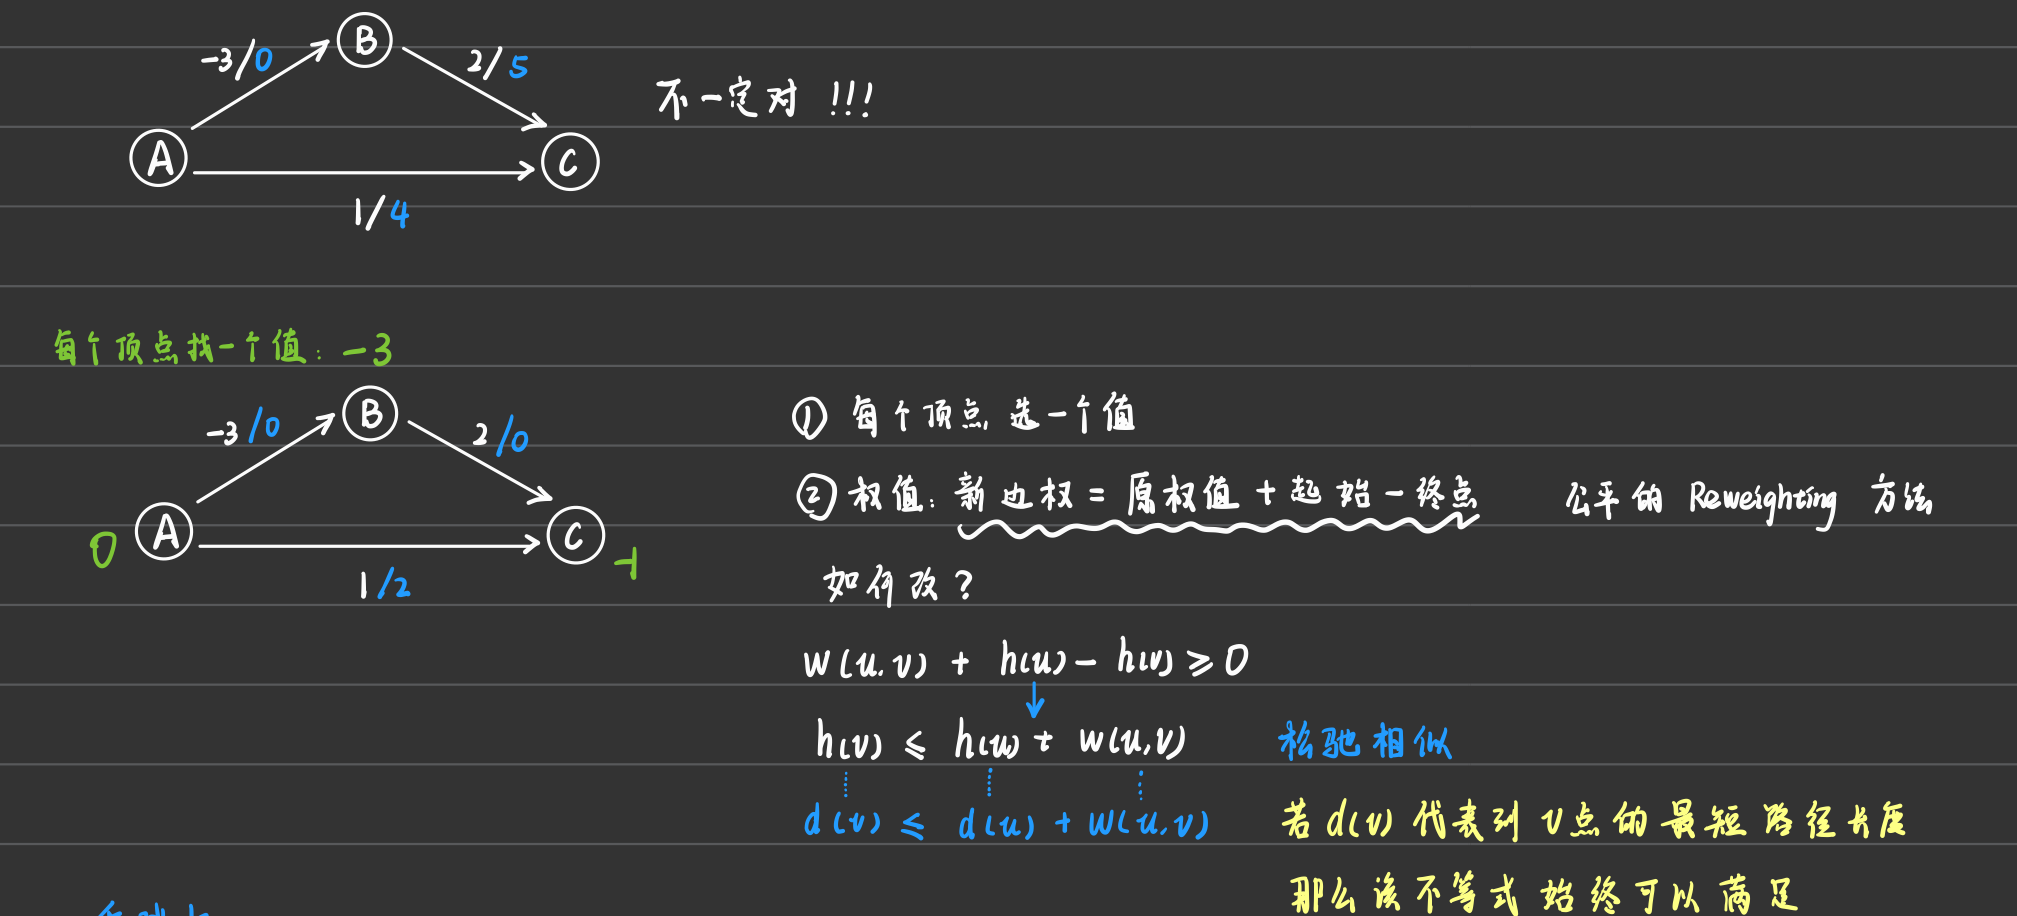 B
-3/0
2/5
不一定对 !!!
A
C
1/4
每个顶点找一个值: -3
B
-3/0
2/0
① 每个顶点选一个值
② 权值: 新边权 = 原权值 + 起始 - 终点 公平的 Reweighting 方法
A
C
0
-1
1/2
如何改?
w(u,v) + h(u) - h(v) ≥ 0
h(v) ≤ h(u) + w(u,v) 松弛相似
d(v) ≤ d(u) + w(u,v) 若d(v)代表到v点的最短路径长度
那么该不等式始终可以满足